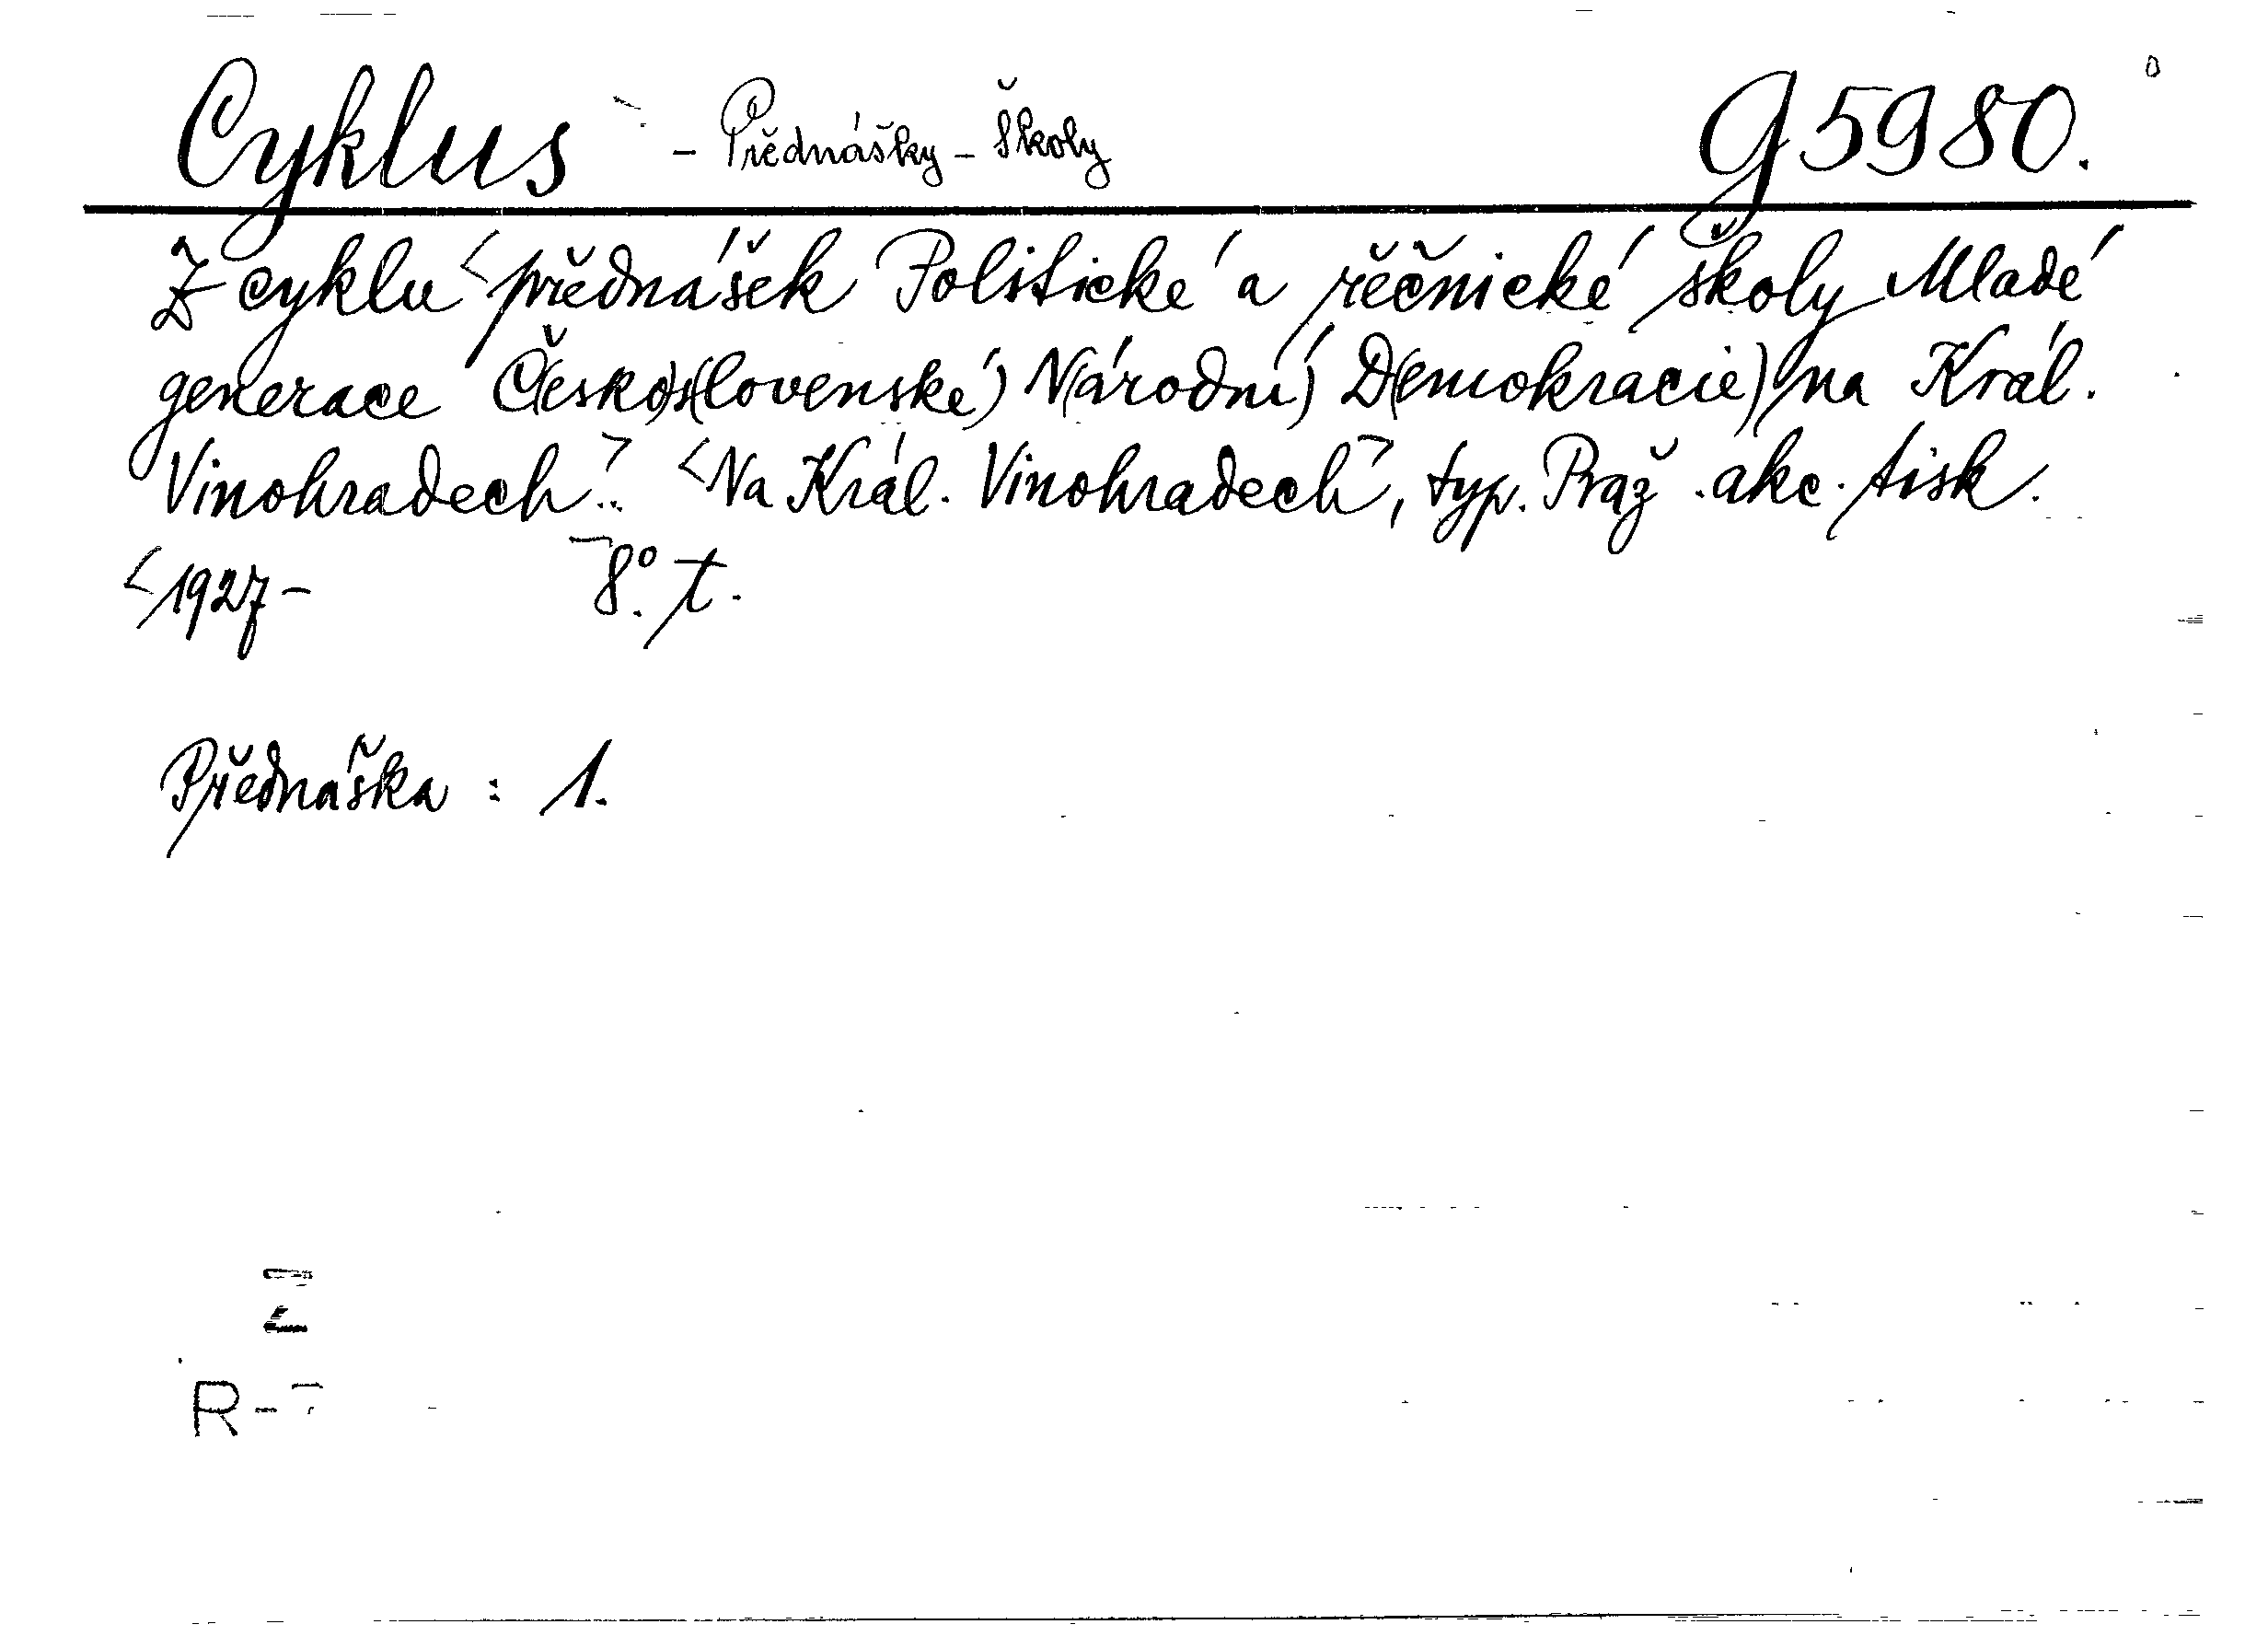 Cyklus - Přednášky - Školy G 5980.
Z cyklu <přednášek Politické a řěčnické školy Mladé
generace Č(esko)s(lovenské) N(árodní) D(emokracie) na Král.
Vinohradech>.. <Na Král. Vinohradech>, typ. Praž. akc. tisk.
<1927- 8°. t.
Přednáška : 1.
R-